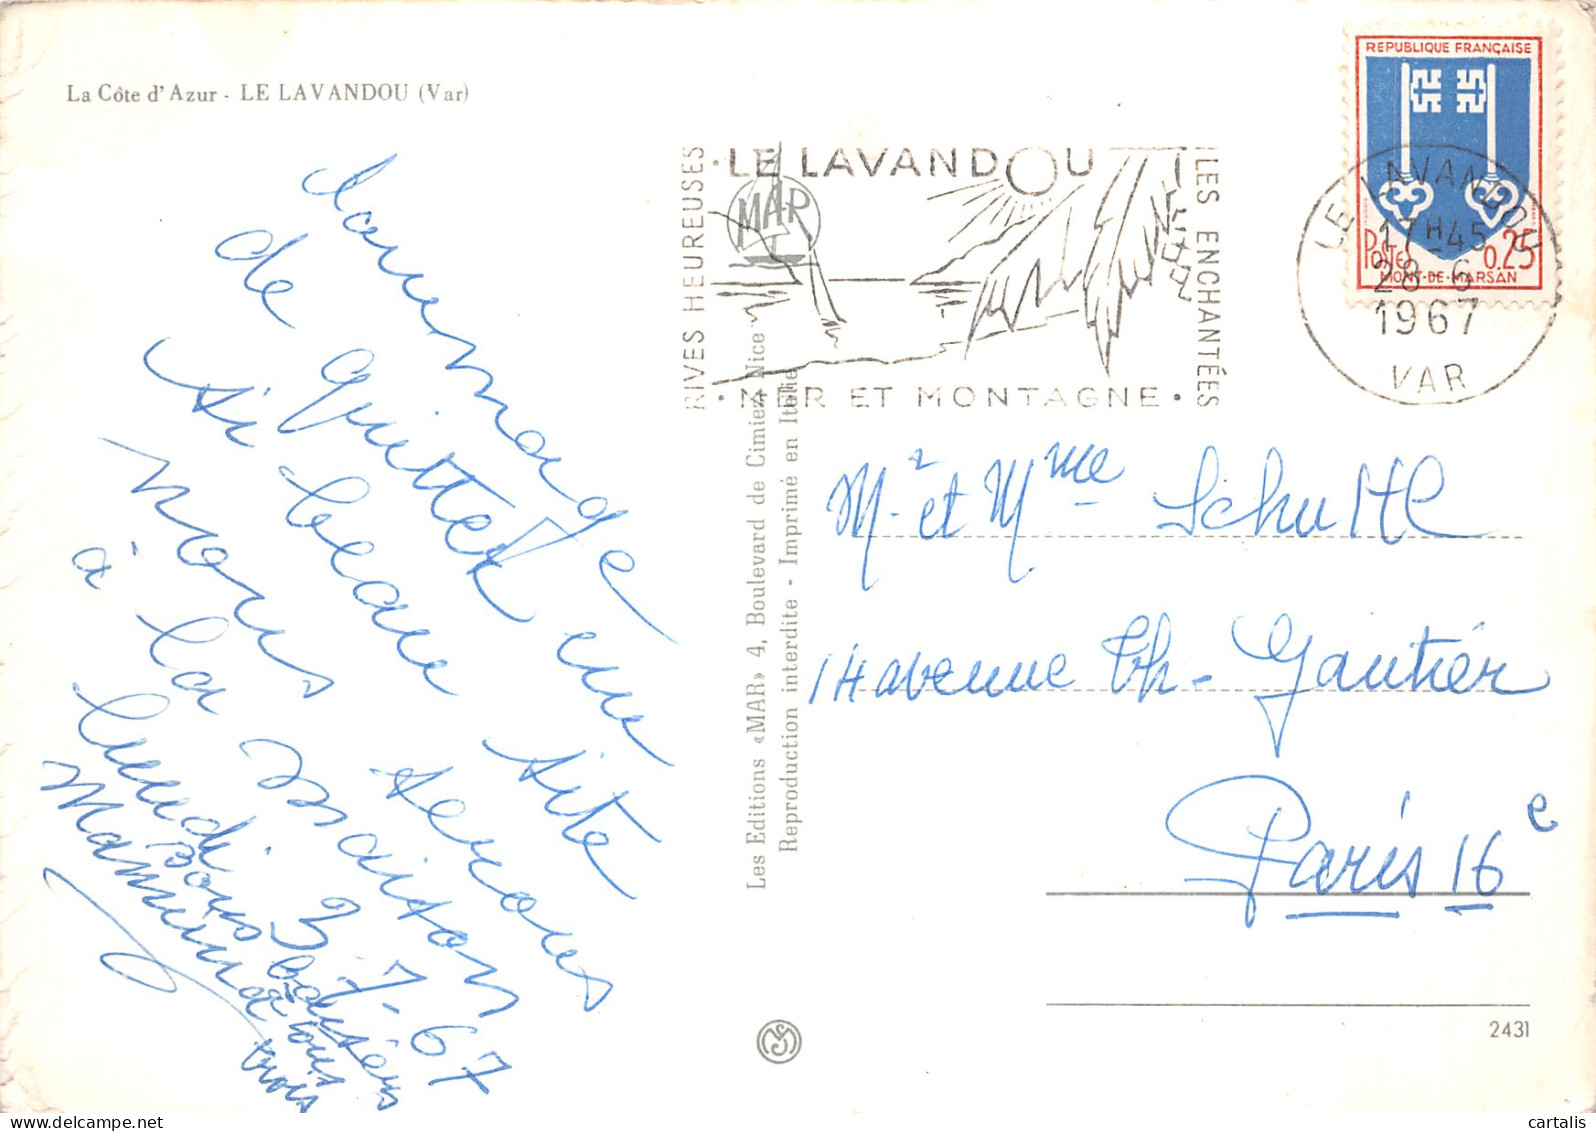 La Côte d'Azur - LE LAVANDOU (Var)
Dommage
de quitter un
si beau site
nous serons
à la maison
lundi 3-7-67
bons baisers
à tous trois
Mamina
RIVES HEUREUSES
• LE LAVANDOU
ILES ENCHANTÉES
• MER ET MONTAGNE •
MAR
REPUBLIQUE FRANÇAISE
Postes 0,25
MONT-DE-MARSAN
LE LAVANDOU
17H45
28-6
1967
VAR
Les Editions «MAR» 4, Boulevard de Cimiez Nice
Reproduction interdite - Imprimé en Italie
Mr et Mme Schultl
14 avenue Th- Gautier
Paris 16e
2431
cartalis